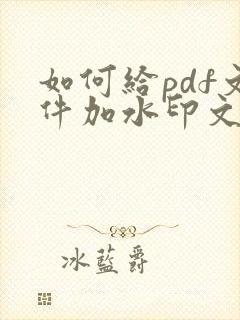 如何给pdf文
件加水印文
冰蓝爵